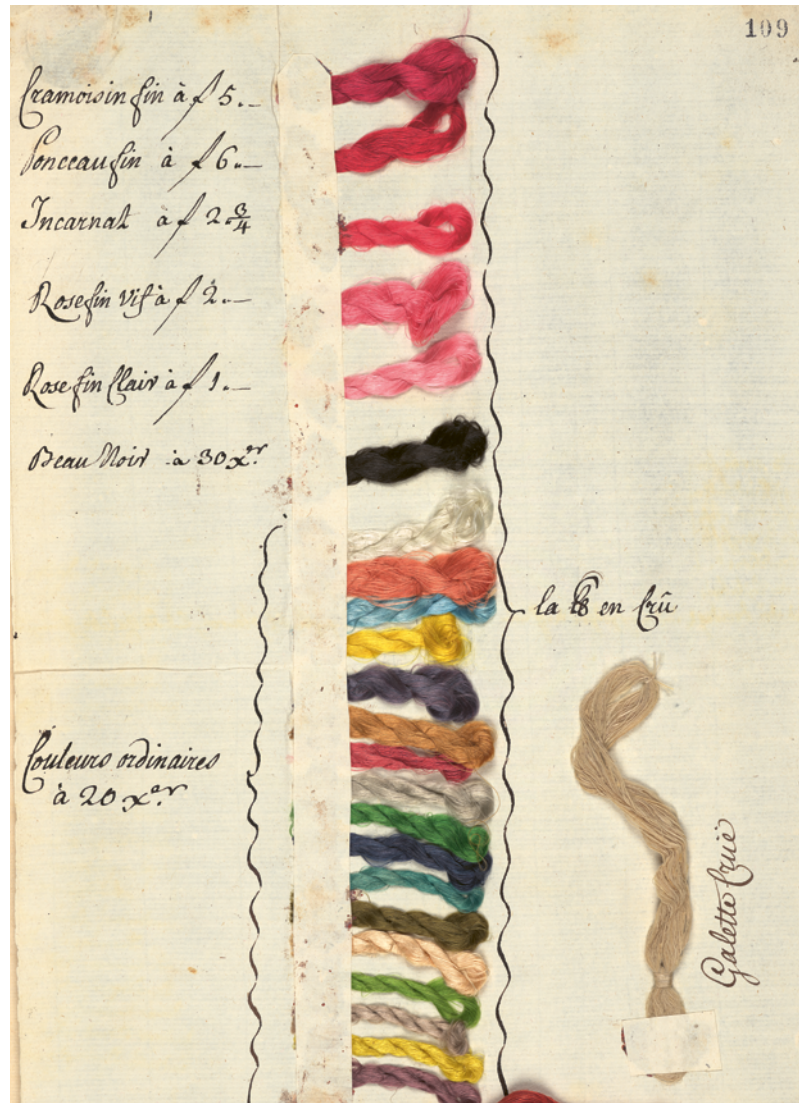 109
Cramoisin fin à f 5.—
Ponceau fin à f 6.—
Incarnat à f 2.¾
Rose fin vif à f 2.—
Rose fin Clair à f 1.—
Beau Noir à 30 xer
la ℔ en Crû
Couleurs ordinaires
à 20 xer
Galette Crüe